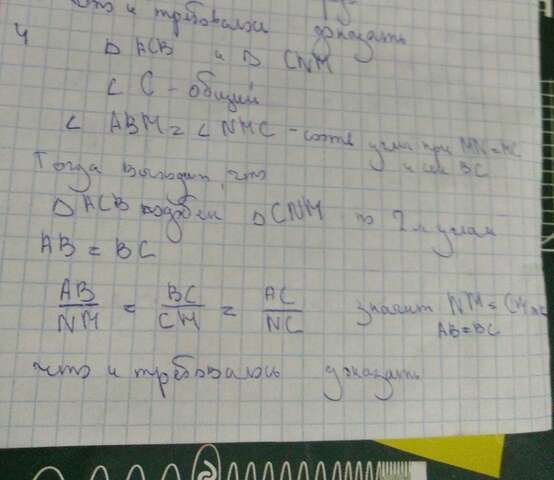 что и требовалось доказать
4
Δ ACB и Δ CNM
∠ C - общий
∠ ABM = ∠ NMC - соотв углы при
и сек BC
Тогда выходит, что
Δ ACB подобен Δ CNM по 2м углам
AB = BC
AB/NM = BC/CM = AC/NC значит NM = CM
AB=BC
что и требовалось доказать